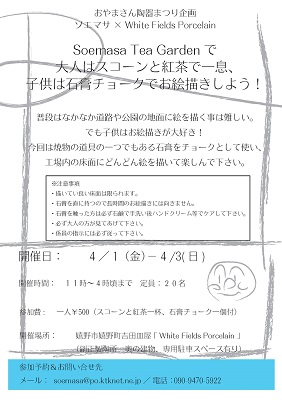 おやまさん陶器まつり企画
ソエマサ × White Fields Porcelain
Soemasa Tea Garden で
大人はスコーンと紅茶で一息、
子供は石膏チョークでお絵描きしよう!
普段はなかなか道路や公園の地面に絵を描く事は難しい。
でも子供はお絵描きが大好き!
今回は焼物の道具の一つでもある石膏をチョークとして使い、
工場内の床面にどんどん絵を描いて楽しんで下さい。
※注意事項
・描いてい良い床面は限られます。
・石膏を直に持つので長時間のお絵描きには向きません。
・石膏を触った方は必ず石鹸で手洗い後ハンドクリーム等でケアして下さい。
・必ず大人の方が見てあげて下さい。
・係員の指示には必ず従って下さい。
開催日: 4/1(金)-4/3(日)
開催時間: 11時~4時頃まで 定員:20名
参加費: 一人¥500(スコーンと紅茶一杯、石膏チョーク一個付)
開催場所: 嬉野市嬉野町吉田皿屋「White Fields Porcelain」
(副正製陶所 裏の建物、専用駐車スペース有り)
参加予約&お問い合せ先
メール: soemasa@po.ktknet.ne.jp / 電話:090-9470-5922